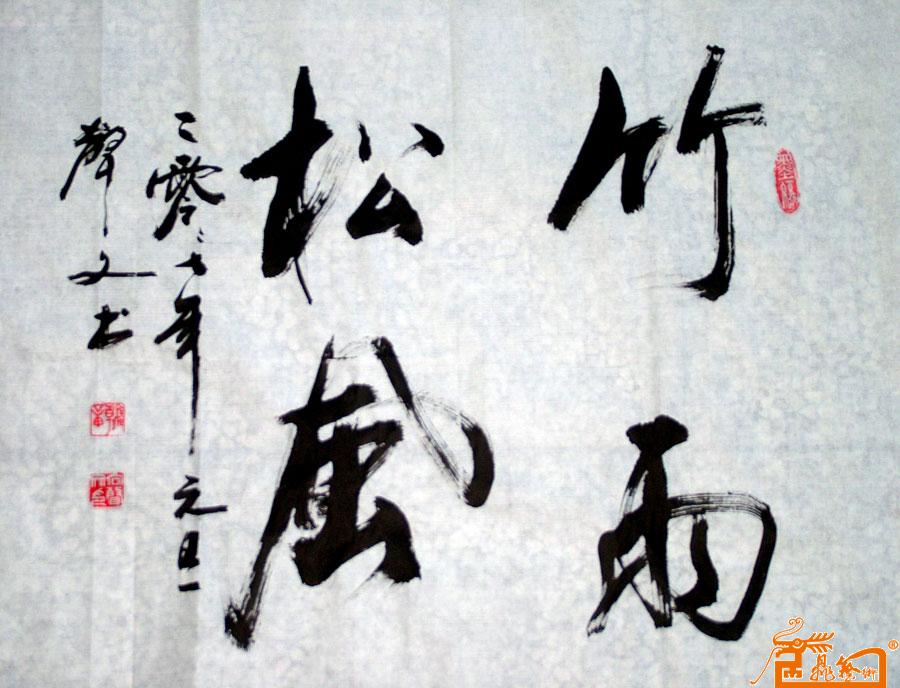 竹雨
松風
二零零七年元旦
聲文书